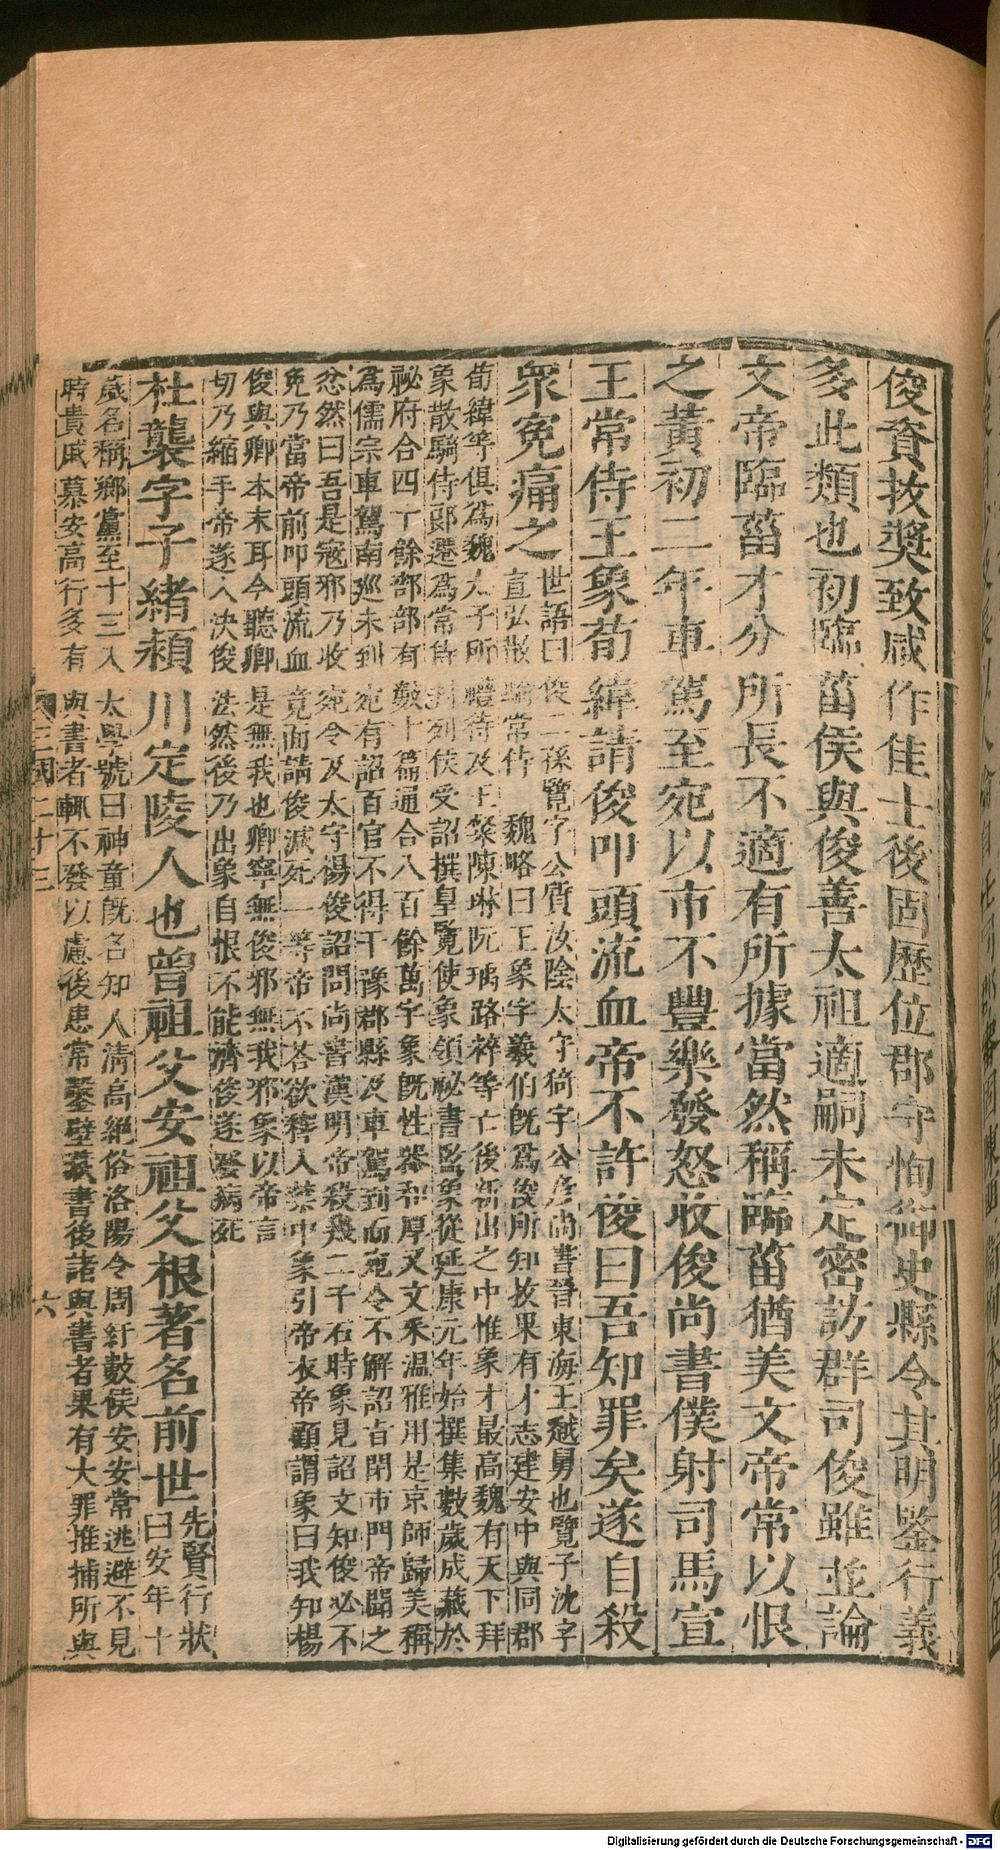 俊資拔奬致咸作佳士後固歷位郡守恂御史縣令其明鑒行義
多此類也初臨菑侯與俊善太祖適嗣未定密訪群司俊雖並論
文帝臨菑才分所長不適有所據當然稱臨菑猶美文帝常以恨
之黃初二年車駕至宛以市不豐樂發怒收俊尚書僕射司馬宣
王常侍王象荀緯請俊叩頭流血帝不許俊曰吾知罪矣遂自殺
衆寃痛之
世語曰俊二孫覽字公質汝陰太守猗字公彥尚書晉東海王越舅也覽子沈字
宣弘散騎常侍 魏略曰王象字羲伯旣爲俊所知拔果有才志建安中與同郡
荀緯等俱爲魏太子所禮待及王粲陳琳阮瑀路粹等亡後新出之中惟象才最高魏有天下拜
象散騎侍郞遷爲常侍封列侯受詔撰皇覽使象領祕書監象從延康元年始撰集數歲成藏於
祕府合四十餘部部有數十篇通合八百餘萬字象旣性器和厚又文采溫雅用是京師歸美稱
爲儒宗車駕南巡未到宛有詔百官不得干豫郡縣及車駕到而宛令不解詔旨閉市門帝聞之
忿然曰吾是寇邪乃收宛令及太守楊俊詔問尚書漢明帝殺幾二千石時象見詔文知俊必不
免乃當帝前叩頭流血竟面請俊減死一等帝不荅欲釋入禁中象引帝衣帝顧謂象曰我知楊
俊與卿本末耳今聽卿是無我也卿寧無俊邪無我邪象以帝言
切乃縮手帝遂入決俊法然後乃出象自恨不能濟俊遂發病死
杜襲字子緒潁川定陵人也曾祖父安祖父根著名前世
先賢行狀
曰安年十
歲名稱鄉黨至十三入太學號曰神童旣名知人淸高絕俗洛陽令周紆數候安安常逃避不見
時貴戚慕安高行多有與書者輒不發以慮後患常鑿壁藏書後諸與書者果有大罪推捕所與
三國二十三 六
Digitalisierung gefördert durch die Deutsche Forschungsgemeinschaft - DFG